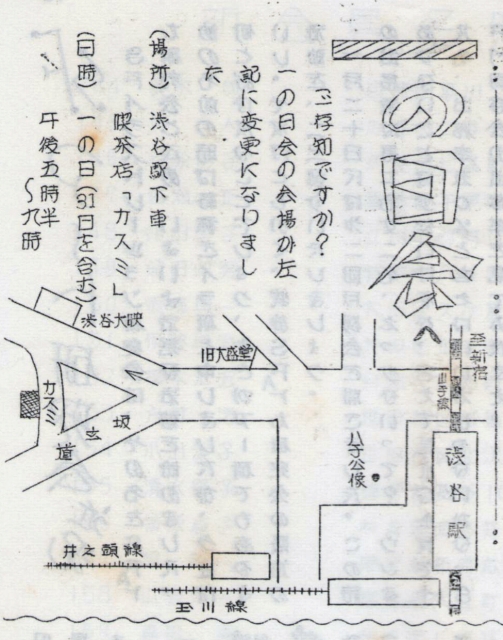 一の日会へ
ご存知ですか？
一の日会の会場が左
記に変更になりまし
た
(場所) 渋谷駅下車
喫茶店 カスミ
(日時) 一の日(31日を含む)
午後五時半
～九時
至新宿
山手線
渋谷駅
ハチ公像
旧大盛堂
渋谷大映
カスミ
道玄坂
井之頭線
玉川線